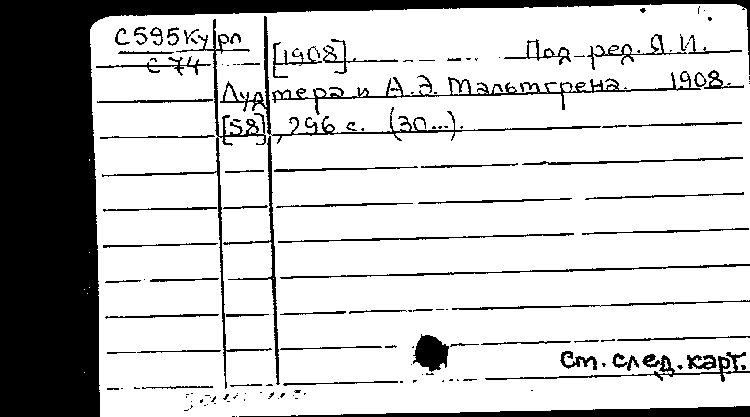 С595Курл
С74
[1908]. Под ред. Я.И.
Лудмера и А.Э. Мальмгрена. 1908.
[58], 296 с. (30...).
См. след. карт.